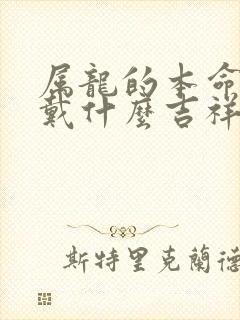 属龍的本命
戴什麼吉祥
斯特里克蘭德